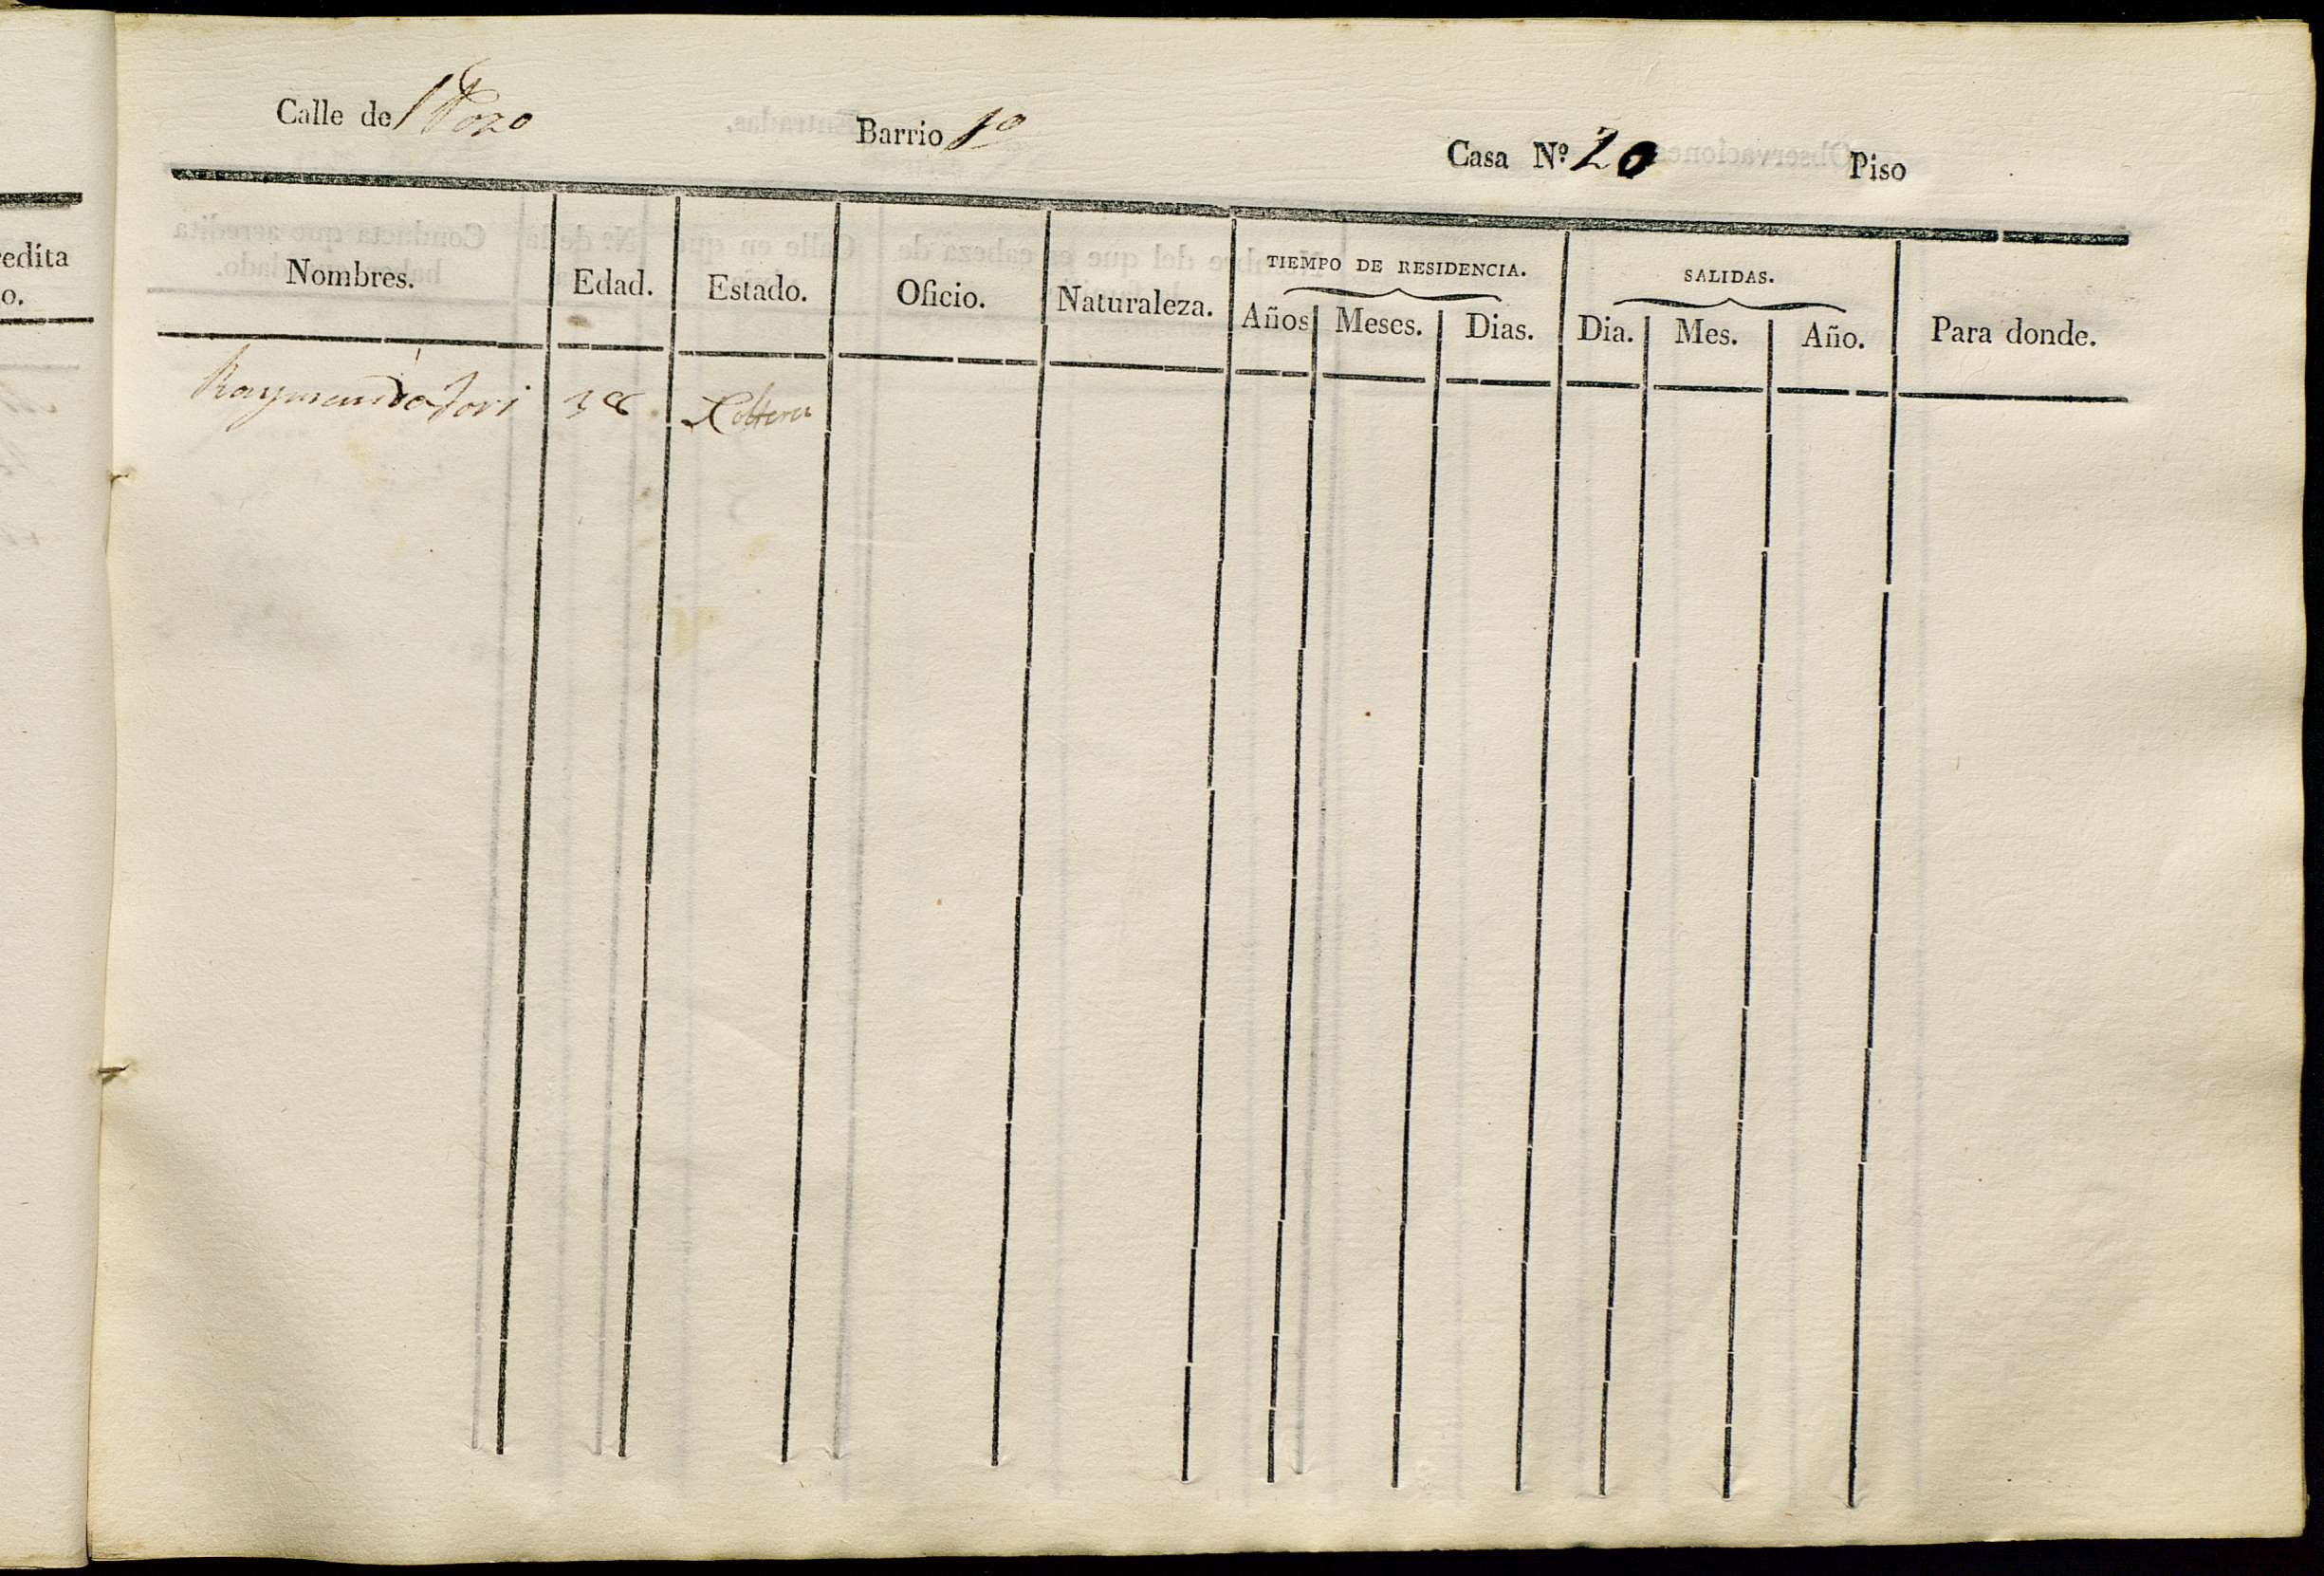 Calle del Pozo Barrio 1º Casa Nº 20 Piso
edita
o.
Nombres. Edad. Estado. Oficio. Naturaleza. TIEMPO DE RESIDENCIA. SALIDAS. Para donde.
Años Meses. Dias. Dia. Mes. Año.
Raymunda Fori 38 Soltera